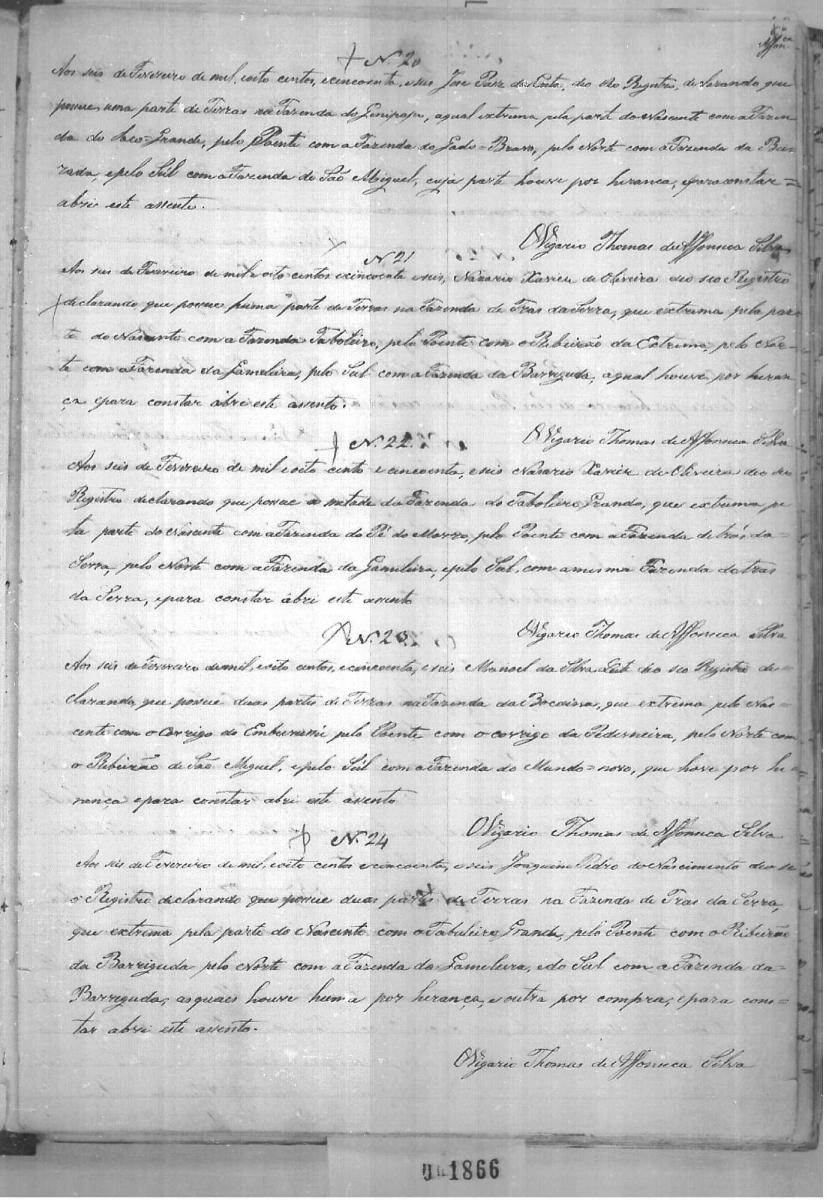 Affon.ca
N. 20
Aos seis de Fevereiro de mil, oito centos, e cincoenta, e seis José Paez da Costa, deo Ao Registro, declarando, que
possue, uma parte de Terras na Fazenda do Genipapo, a qual extrema pela parte do Nascente com a Fazen-
da do Saco-Grande, pelo Poente com a Fazenda do Gado-Bravo, pelo Norte com a Fazenda da Bar-
rada, e pelo Sul com a Fazenda de São Miguel, cuja parte houve por herança, e para constar=
abri este assento.
O Vigario Thomas de Affonseca Silva
N. 21
Aos seis de Fevereiro de mil e oito centos e cincoenta e seis, Nasario Xavier de Oliveira deo seo Registro
declarando que possue huma parte de Terras na Fazenda de Tras da Serra, que extrema pela par-
te do Nascente com a Fazenda Taboleiro, pelo Poente com o Ribeirão da Extrema, pelo Nor-
te com a Fazenda da Gameleira, pelo Sul com a Fazenda da Barriguda, a qual houve por heran-
ça e para constar abri este assento.
O Vigario Thomas de Affonseca Silva
N. 22
Aos seis de Fevereiro de mil e oito cento e cincoenta, e seis Nasario Xavier de Oliveira deo seo
Registro declarando que possue a metade da Fazenda do Taboleiro Grande, que extrema pe
la parte do Nascente com a Fazenda do Pé do Morro, pelo Poente com a Fazenda de tras da
Serra, pelo Norte com a Fazenda da Gameleira, e pelo Sul, com a mesma Fazenda de tras
da Serra, e para constar abri este assento
O Vigario Thomas de Affonseca Silva
N. 23
Aos seis de Fevereiro de mil, e oito centos, e cincoenta, e seis Manoel da Silva Leite deo seo Registro de-
clarando que possue duas partes de Terras na Fazenda da Bocaina, que extrema pelo Nas-
cente com o corrigo do Emburussú pelo Poente com o corrigo da Pederneira, pelo Norte com
o Ribeirão de São Miguel, e pelo Sul com a Fazenda do Mundo-novo, que hove por he
rança e para constar abri este assento
O Vigario Thomas de Affonseca Silva
N. 24
Aos seis de Fevereiro de mil, e oito centos e cincoenta, e seis Joaquim Pedro do Nascimento deo se
o Registro declarando que possue duas partes de Terras na Fazenda de Tras da Serra,
que extrema pela parte do Nascente com o Tabuleiro Grande, pelo Poente com o Ribeirão
da Barriguda pelo Norte com a Fazenda da Gameleira, e do Sul com a Fazenda da=
Barriguda, as quaes houve huma por herança, e outra por compra, e para cons=
tar abri este assento.
O Vigario Thomas de Affonseca Silva
1866